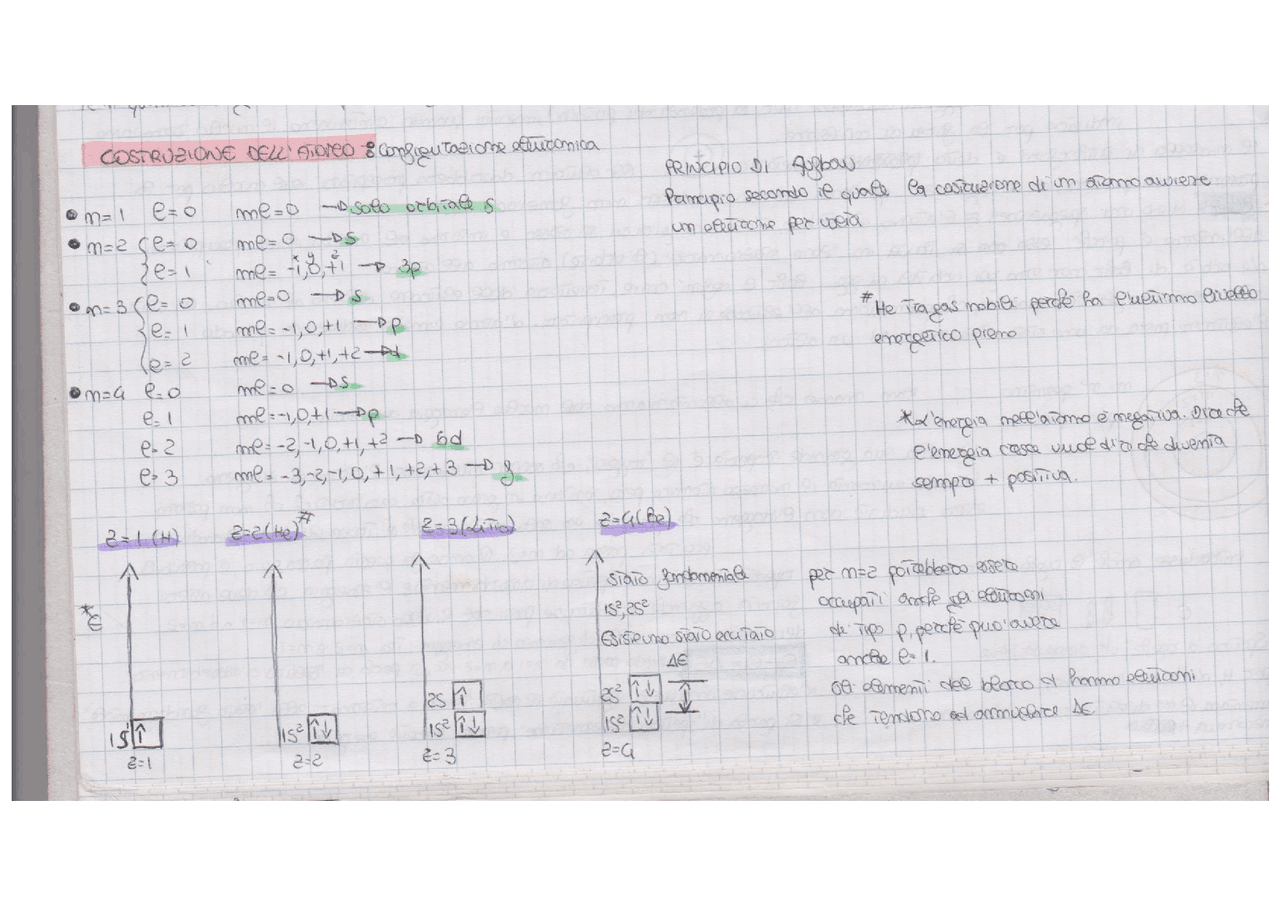 COSTRUZIONE DELL'ATOMO : Configurazione elettronica
PRINCIPIO DI Aufbau
Principio secondo il quale la costruzione di un atomo avviene
un elettrone per volta
• n=1 l=0 ml=0 → solo orbitale s
• n=2 l=0 ml=0 → s
x y z
l=1 ml=-1,0,+1 → 3p
• n=3 l=0 ml=0 → s
l=1 ml=-1,0,+1 → p
l=2 ml=-1,0,+1,+2 → d
• n=4 l=0 ml=0 → s
l=1 ml=-1,0+1 → p
l=2 ml=-2,-1,0,+1,+2 → 5d
l=3 ml=-3,-2,-1,0,+1,+2,+3 → f
# He tra gas nobili perché ha l'ultimo livello
energetico pieno
* L'energia nell'atomo è negativa. Dire che
l'energia cresce vuol dire che diventa
sempre + positiva.
Z=1 (H) Z=2 (He)# Z=3 (Litio) Z=4 (Be)
*E
1S¹ ↑
Z=1
1S² ↑↓
Z=2
2S ↑
1S² ↑↓
Z=3
stato fondamentale
1S², 2S²
Esiste uno stato eccitato
ΔE
2S² ↑↓
1S² ↑↓
Z=4
per n=2 potrebbero essere
occupati anche da elettroni
di tipo p, perché può avere
anche l=1.
Gli elementi del blocco d hanno elettroni
che tendono ad annullare ΔE